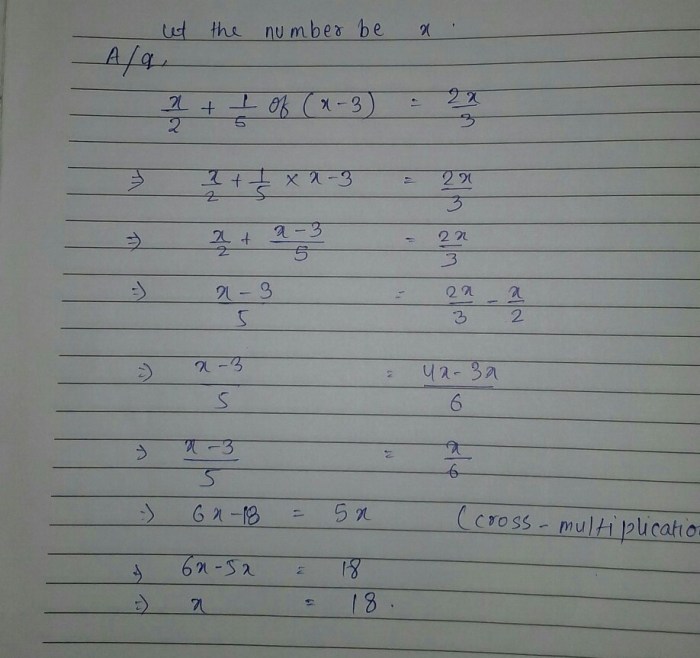 Let the number be x.
A/q,
x/2 + 1/5 of (x-3) = 2x/3
⇒ x/2 + 1/5 × x-3 = 2x/3
⇒ x/2 + x-3/5 = 2x/3
⇒ x-3/5 = 2x/3 - x/2
⇒ x-3/5 = 4x-3x/6
⇒ x-3/5 = x/6
⇒ 6x-18 = 5x (cross-multiplication
⇒ 6x-5x = 18
⇒ x = 18.